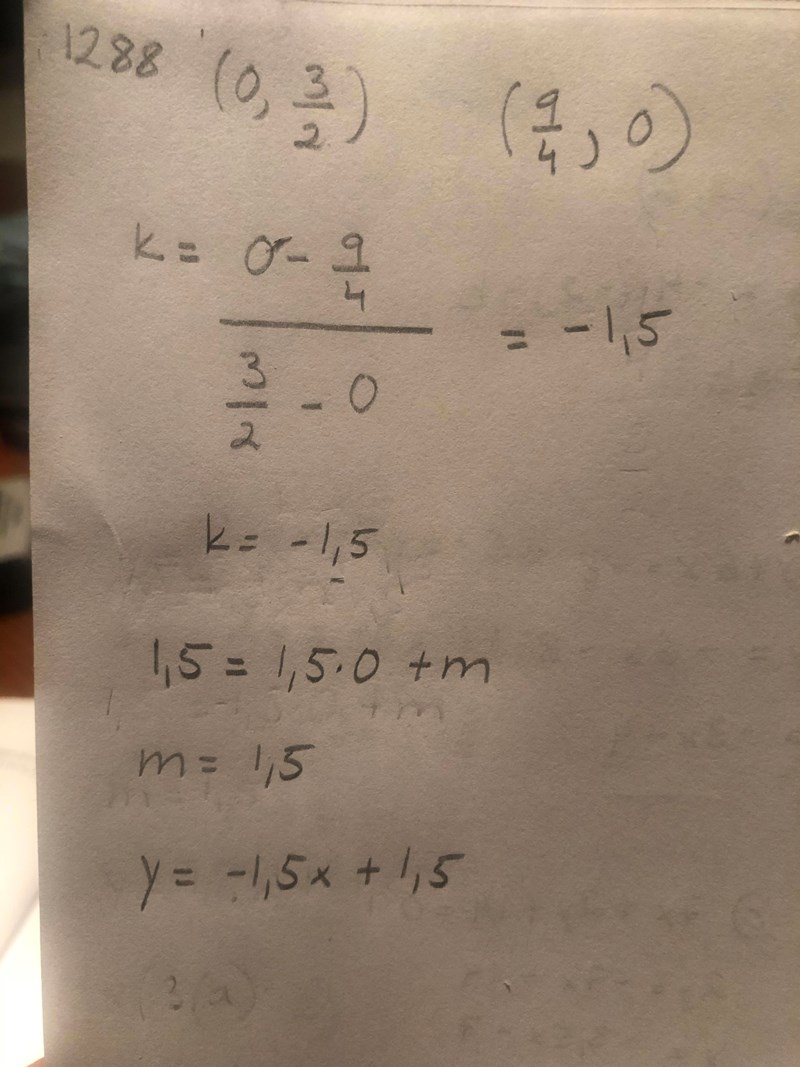 1288 (0, 3/2) (9/4, 0)
k = (0 - 9/4) / (3/2 - 0) = -1,5
k = -1,5
1,5 = 1,5·0 + m
m = 1,5
y = -1,5x + 1,5